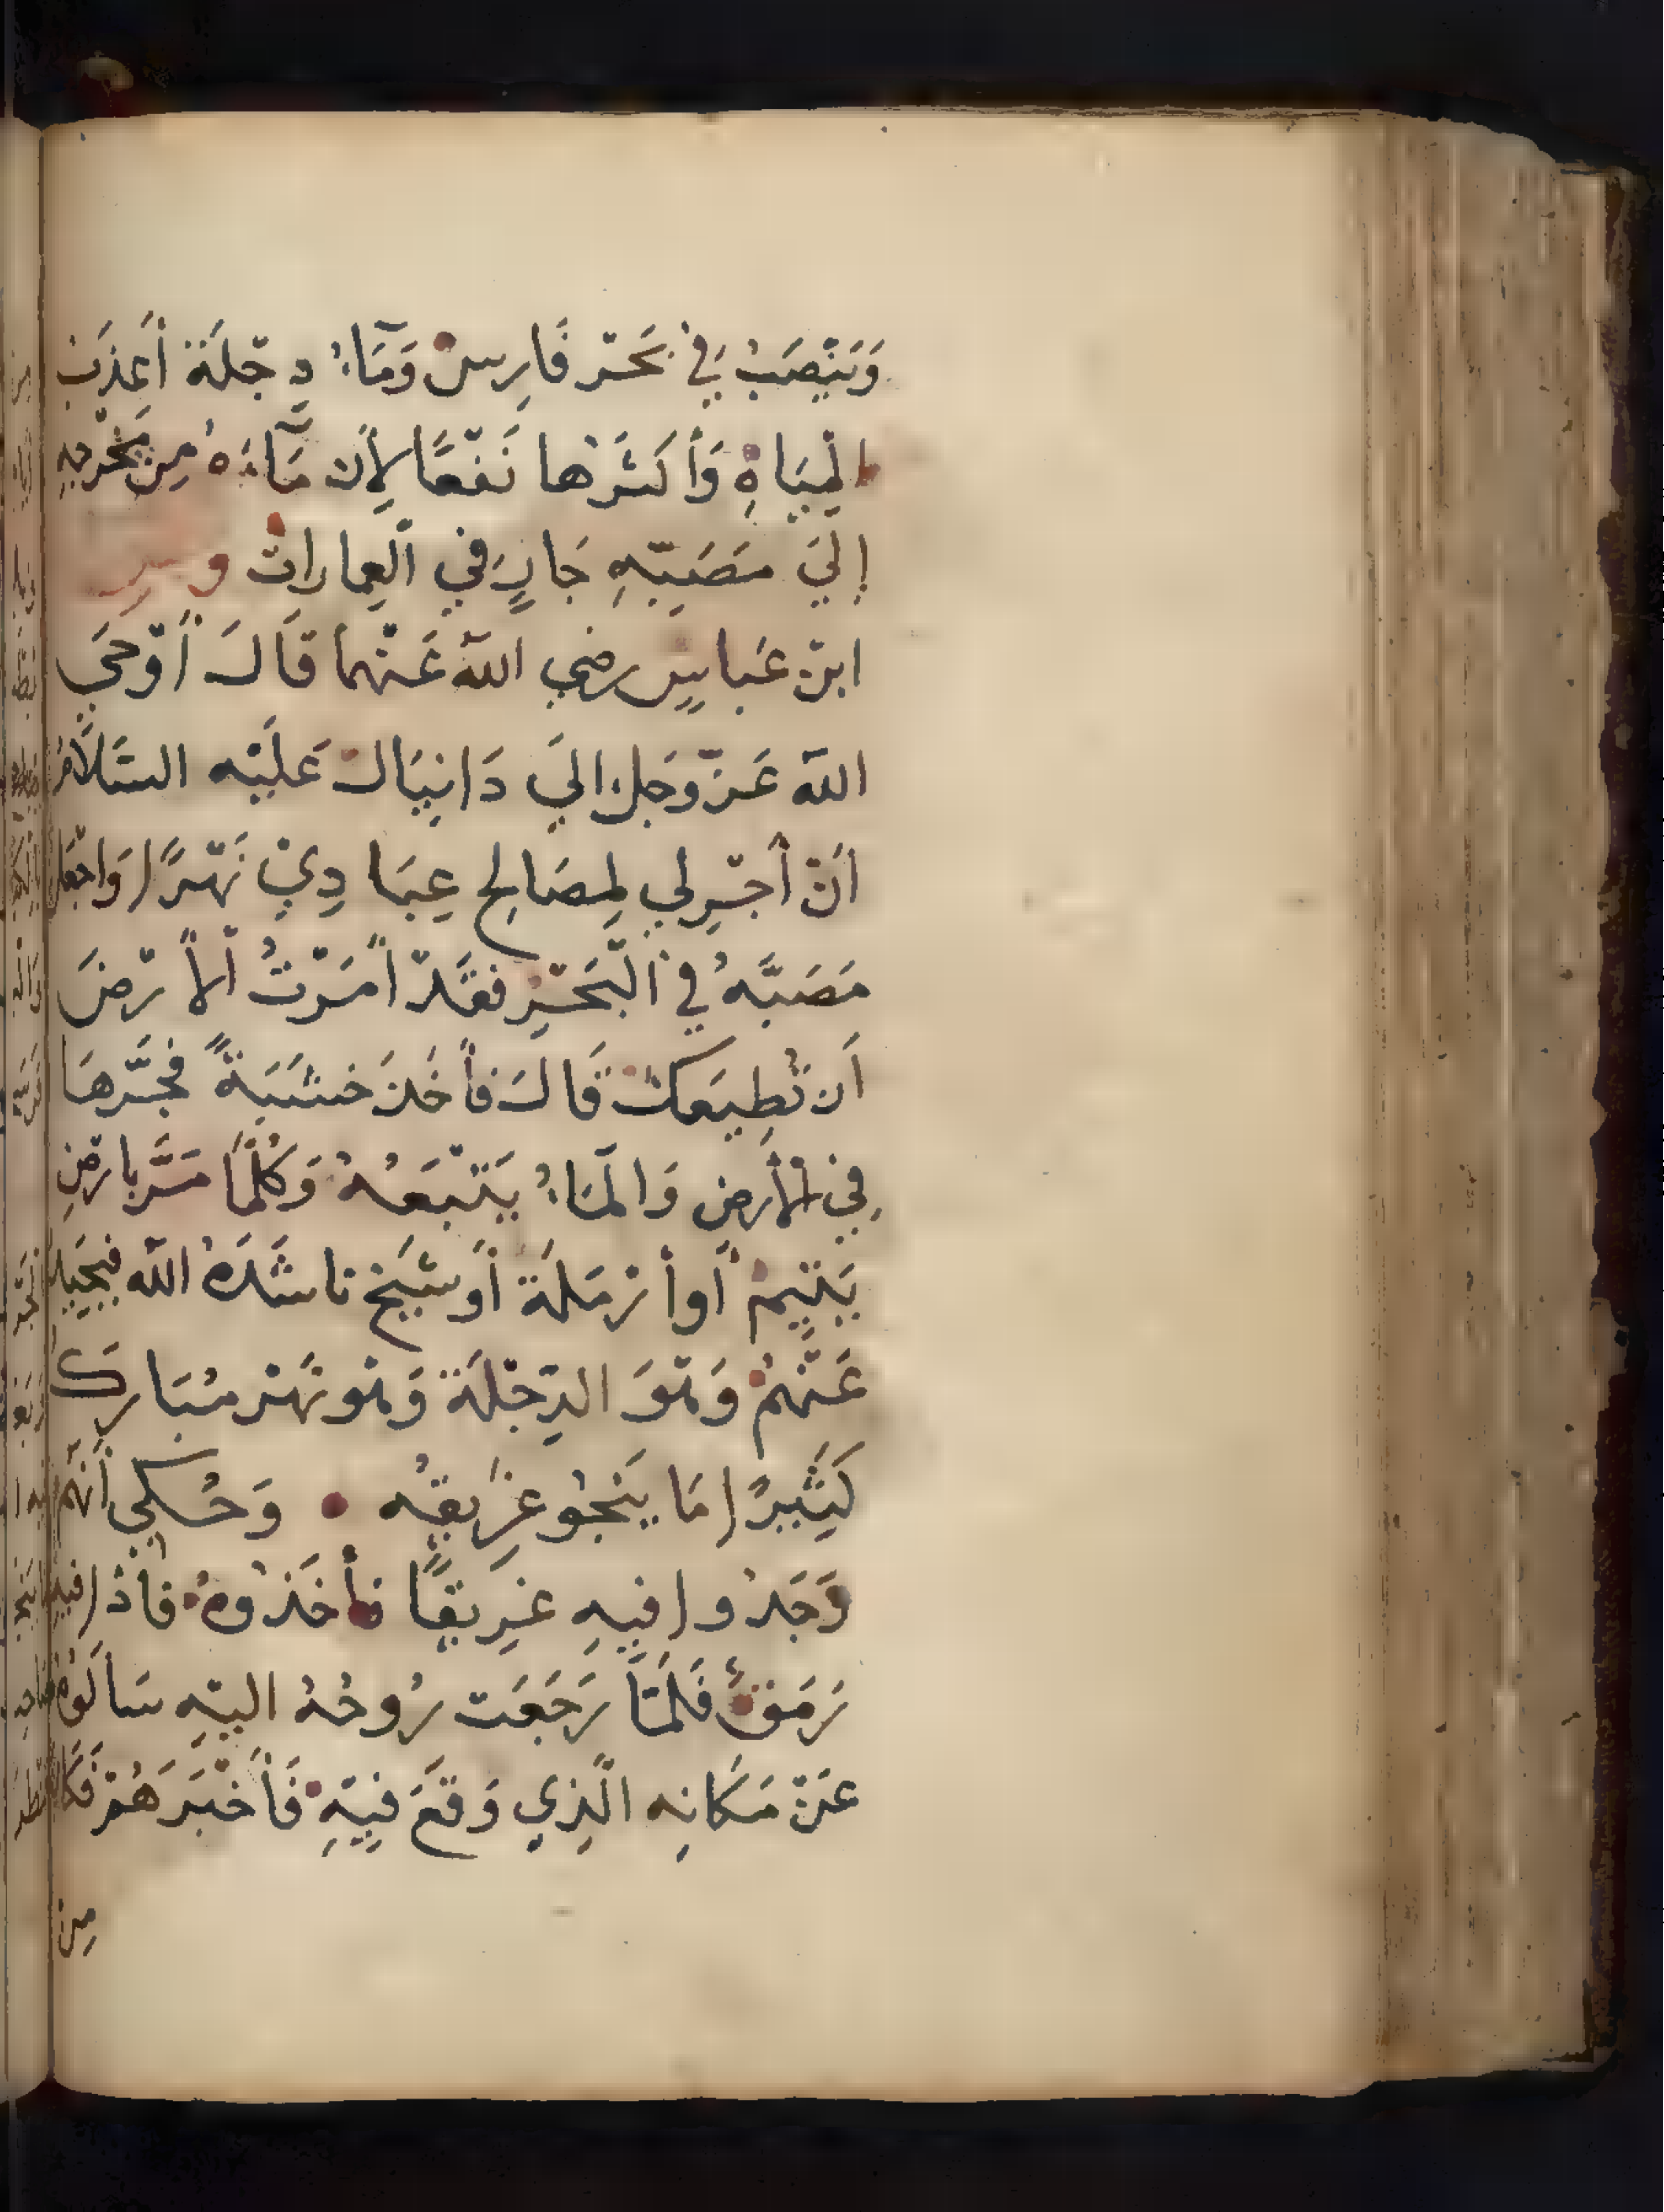 وَيَنْصَبُ فِي بَحْر فَارِسْ وَمَآءُ دِجْلَةَ أَعْذَبْ
الْمِيَاهِ وَأَكثَرْها نَفْعًا لِأَن مَآءَهُ مِن مَخْرجِهِ
إِلَي مَصَبِّهِ جَارٍ في اَلعِماراتْ
ابنْ عَباسٍ رضي اللهَ عَنْهما قَالَ أَوْحَي
اللهَ عَزّ وَجَلْ الَي دَانِيَالْ عَلَيْه السَّلَامُ
اَنْ أَجْرِلي لِمصَالح عِبَا دِيْ نَهْرًا وَاجْعَل
مَصَبَّهُ فِي اَلْبَحْرِ فَقَدْ اَمَرْتُ اَلاَرْضَ
اَن تُطِيعَكْ قَالَ فأَخَذَ خشَبَةً فَجَّرهَا
فِي الأَرضِ وَالمَاءُ يَتْبَعُهُ وَكُلَّمَا مَرَّ بارْضِ
يَتِيمْ أَو أَرْمَلَة أَو شَيَخ ناشَدَهُ الله فيَحَيِدُ
عَنْهُمْ وَهْوَ الدِجْلَةَ وَهْو نَهْر مُبَارك
كَثِيرًا مَا يَنْجُو غَرِيقُه وَحُكي أَنَّهُمْ
وَجَدُوا فِيهِ غَرِيقًا فأَخَذُوهُ فَاذا فِيهِ
رَمَقْ فَلَمَّا رَجَعَت رُوحُهُ اليْهِ سَأَلُوهُ
عَنْ مَكَانِه الَّذِي وَقَعَ فِيْهِ فَأَخْبَرَهُمْ فَكَانَ
مِنْ